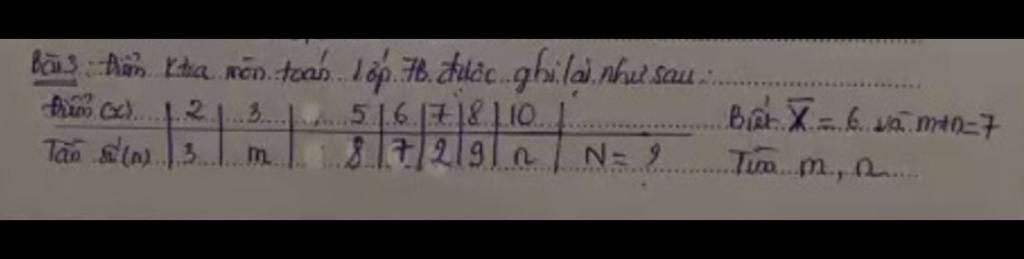 Bài 3: Điểm ktra môn toán lớp 7B được ghi lại như sau:
Điểm (x) | 2 | 3 | 5 | 6 | 7 | 8 | 10 | Biết X̅ = 6 và m+n=7
Tần số (n) | 3 | m | 8 | 7 | 2 | 9 | n | N = ? Tìm m, n